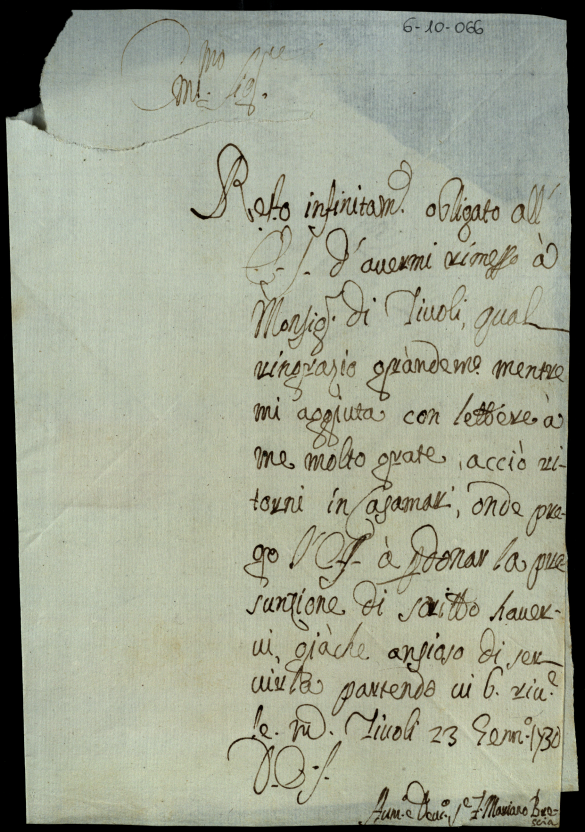 6-10-066
mo re
mi. Sig.
Resto infinitam. obligato all'
d'avermi rimesso à
Monsig. di Tivoli, qual
ringrazio grandeme. mentre
mi aggiuta con lettere à
me molto grate, acciò ri-
torni in Casamari, onde pre-
go à donar la pre
sunzione di scritto haver-
vi, giàche ansioso di ser
virla partendo vi b. riv.e
le. m. Tivoli 23 Genn.o 1730
D. S.
Hum.o e Devo. Se. F. Mariano Bre-
scia